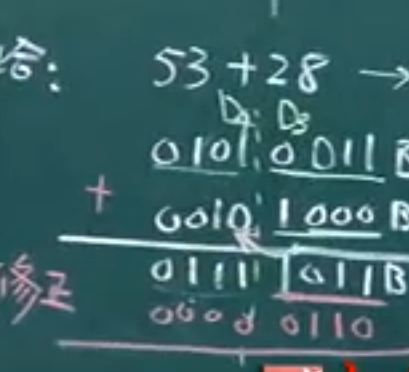 答: 53+28 →
D₄ D₃
0101 0011 B
+ 0010 1000 B
0111 1011 B
修正 0000 0110